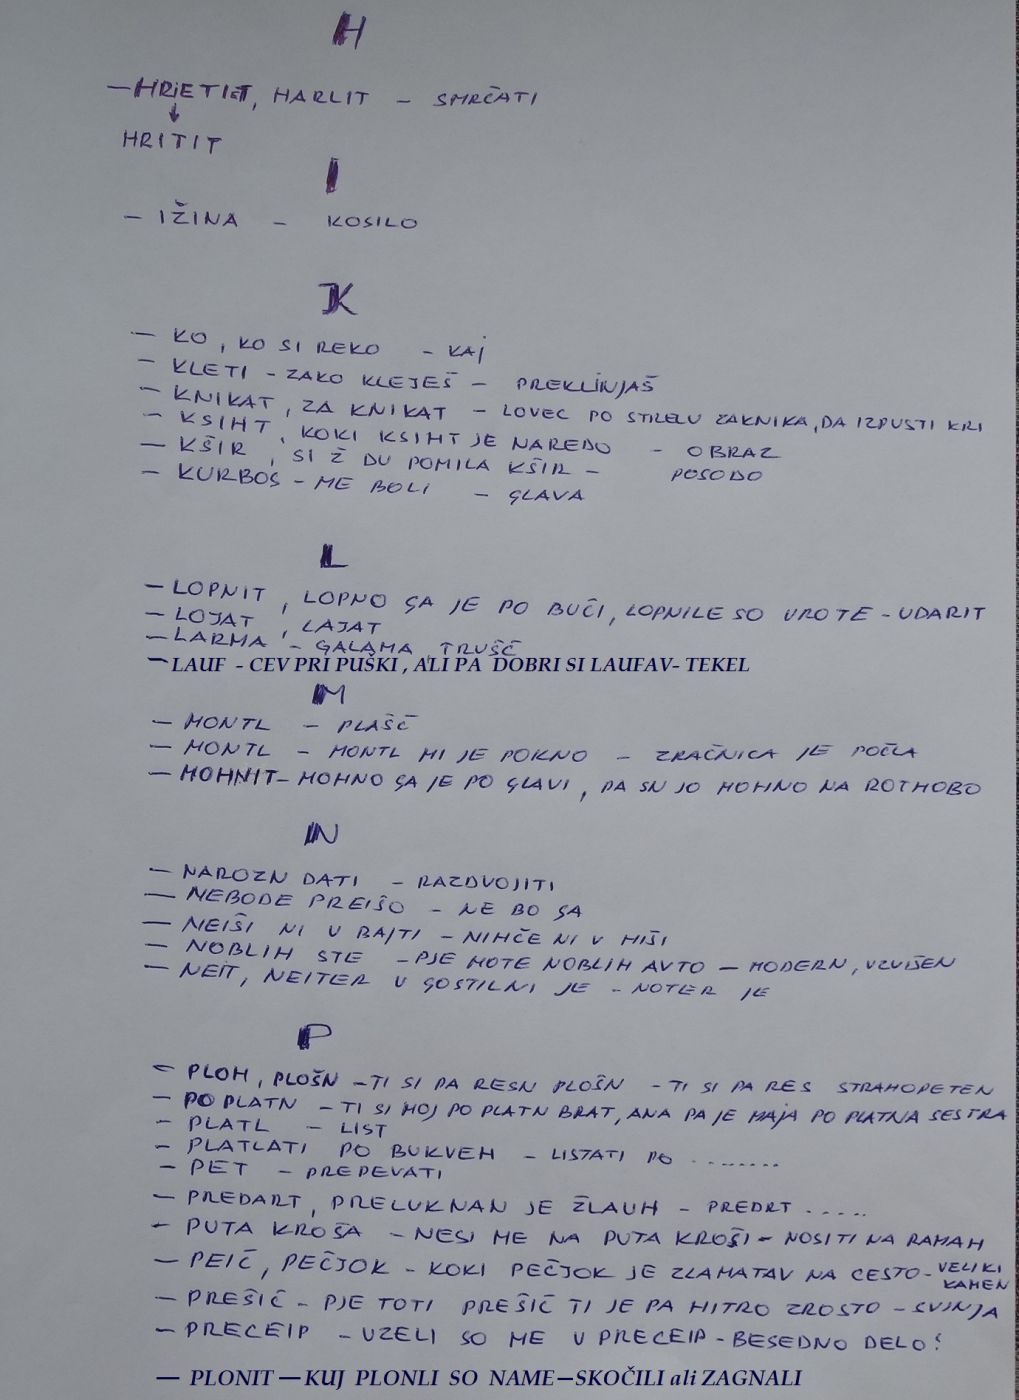 H
- HRIETIET, HARLIT - SMRČATI
HRITIT
I
- IŽINA - KOSILO
K
- KO, KO SI REKO - KAJ
- KLETI - ZAKO KLEJEŠ - PREKLINJAŠ
- KNIKAT, ZA KNIKAT - LOVEC PO STRELU ZAKNIKA, DA IZPUSTI KRI
- KSIHT, KOKI KSIHT JE NAREDO - OBRAZ
- KŠIR, SI Ž DU POMILA KŠIR - POSODO
- KURBOS - ME BOLI - GLAVA
L
- LOPNIT, LOPNO GA JE PO BUČI, LOPNILE SO VROTE - UDARIT
- LOJAT, LAJAT
- LARMA - GALAMA, TRUŠČ
- LAUF - CEV PRI PUŠKI, ALI PA DOBRI SI LAUFAV- TEKEL
M
- MONTL - PLAŠČ
- MONTL - MONTL MI JE POKNO - ZRAČNICA JE POČLA
- MOHNIT- MOHNO GA JE PO GLAVI, PA SN JO MOHNO NA ROTHOBO
N
- NAROZN DATI - RAZDVOJITI
- NEBODE PREIŠO - NE BO GA
- NEIŠI NI U BAJTI - NIHČE NI V HIŠI
- NOBLIH STE - PJE MOTE NOBLIH AVTO - MODERN, VZVIŠEN
- NEIT, NEITER U GOSTILNI JE - NOTER JE
P
- PLOH, PLOŠN - TI SI PA RESN PLOŠN - TI SI PA RES STRAHOPETEN
- PO PLATN - TI SI MOJ PO PLATN BRAT, ANA PA JE MAJA PO PLATNA SESTRA
- PLATL - LIST
- PLATLATI PO BUKVEH - LISTATI PO ........
- PET - PREPEVATI
- PREDART, PRELUKNAN JE ŽLAUH - PREDRT .....
- PUTA KROŠA - NESI ME NA PUTA KROŠI - NOSITI NA RAMAH
- PEIČ, PEČJOK - KOKI PEČJOK JE ZLAMATAV NA CESTO - VELIKI KAMEN
- PREŠIČ - PJE TOTI PREŠIČ TI JE PA HITRO ZROSTO - SVINJA
- PRECEIP - UZELI SO ME U PRECEIP - BESEDNO DELO!
— PLONIT — KUJ PLONLI SO NAME—SKOČILI ali ZAGNALI